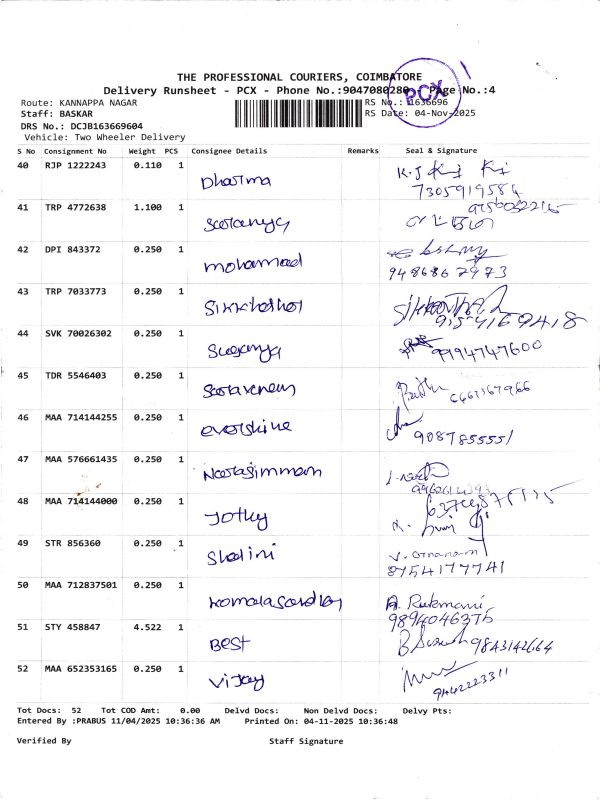 THE PROFESSIONAL COURIERS, COIMBATORE
Delivery Runsheet - PCX - Phone No.:9047080280 Page No.:4
PCX
Route: KANNAPPA NAGAR RS No.: 1636696
Staff: BASKAR RS Date: 04-Nov-2025
DRS No.: DCJB163669604
Vehicle: Two Wheeler Delivery
S No Consignment No Weight PCS Consignee Details Remarks Seal & Signature
40 RJP 1222243 0.110 1
Dharma
7305919584
41 TRP 4772638 1.100 1
Saranya
42 DPI 843372 0.250 1
mohamad
9486867973
43 TRP 7033773 0.250 1
9154169418
44 SVK 70026302 0.250 1
Suganya 9994747600
45 TDR 5546403 0.250 1
46 MAA 714144255 0.250 1
evershine 9087855551
47 MAA 576661435 0.250 1
Narasimman
48 MAA 714144000 0.250 1
Jothy
49 STR 856360 0.250 1
Shalini
8754177741
50 MAA 712837501 0.250 1
A. Rukmani
9894046376
51 STY 458847 4.522 1
Best 9843142664
52 MAA 652353165 0.250 1
Vijay 9442223311
Tot Docs: 52 Tot COD Amt: 0.00 Delvd Docs: Non Delvd Docs: Delvy Pts:
Entered By :PRABUS 11/04/2025 10:36:36 AM Printed On: 04-11-2025 10:36:48
Verified By Staff Signature